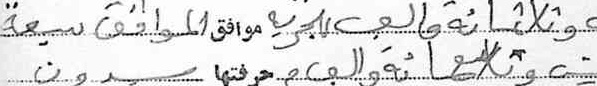 وثلاثمائة والف هجرية موافق الموافق سبعة
وثلاثمائة والف م حرفتها بدون